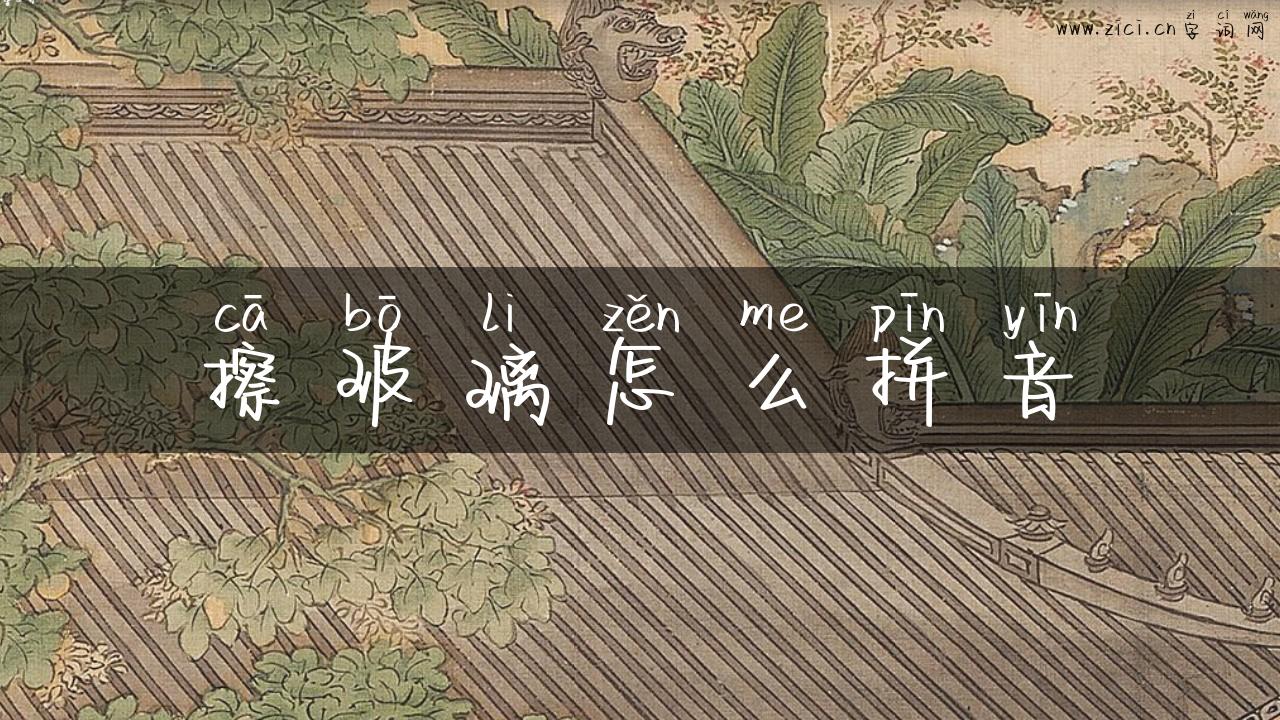 zì cí wǎng
www.zici.cn 字词网
cā bō li zěn me pīn yīn
擦玻璃怎么拼音